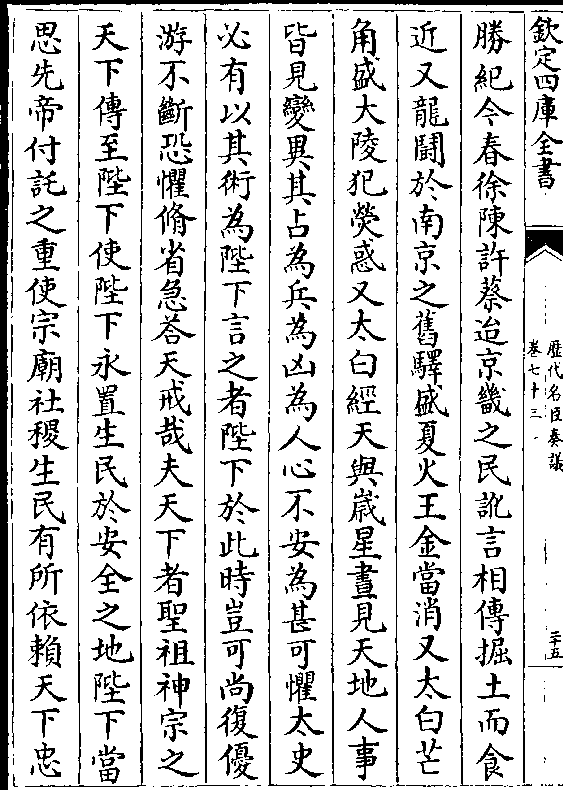 欽定四庫全書
歷代名臣奏議
卷七十三
二十五
勝紀今春徐陳許蔡迨京畿之民訛言相傳掘土而食
近又龍鬪於南京之舊驛盛夏火王金當消又太白芒
角盛大陵犯熒惑又太白經天與嵗星晝見天地人事
皆見變異其占為兵為凶為人心不安為甚可懼太史
必有以其術為陛下言之者陛下於此時豈可尚復優
游不斷恐懼脩省急荅天戒哉夫天下者聖祖神宗之
天下傳至陛下使陛下永置生民於安全之地陛下當
思先帝付託之重使宗廟社稷生民有所依賴天下忠